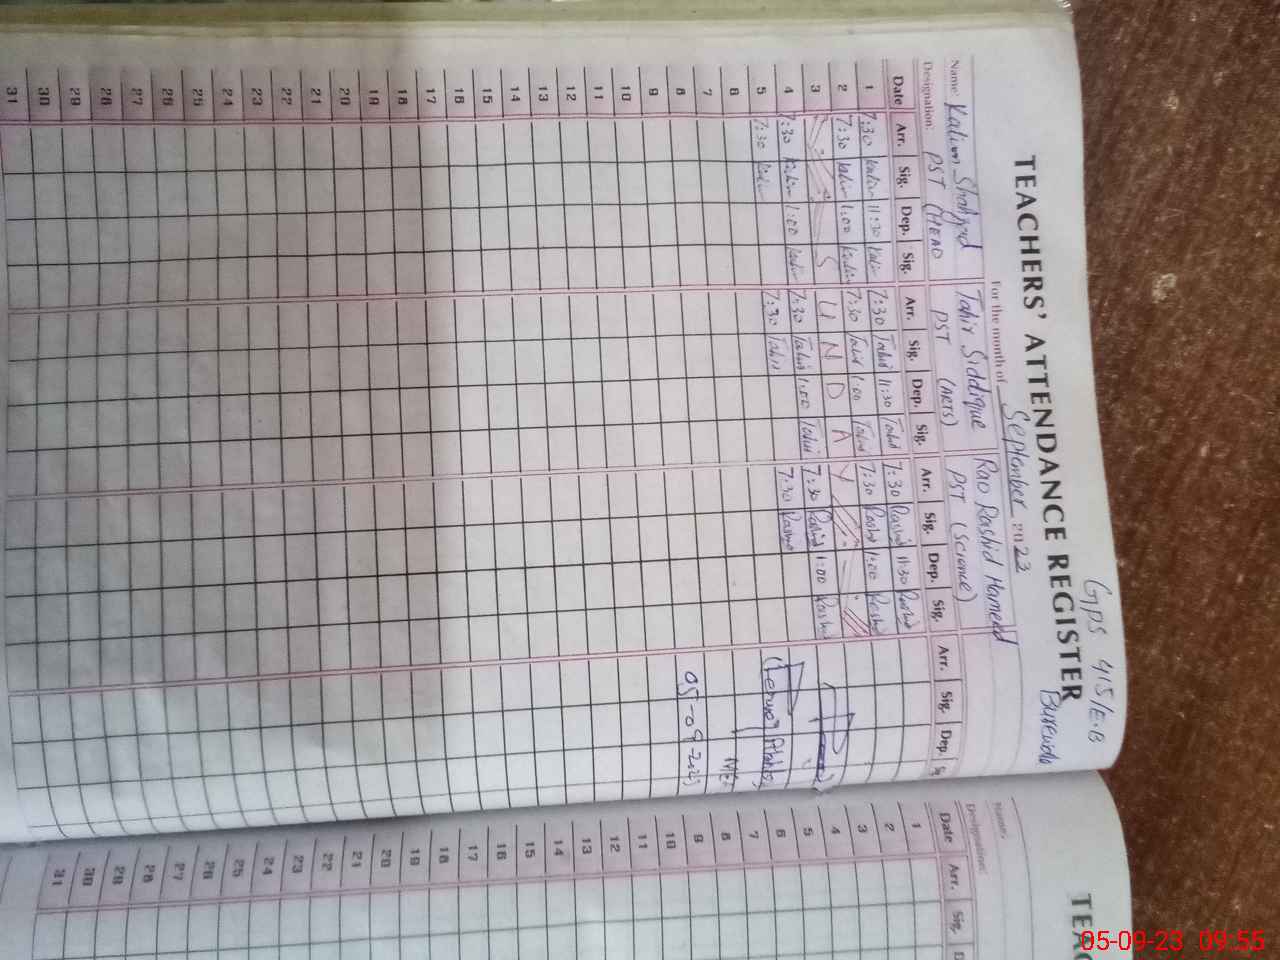 GPS 415/E.B
Burewala
TEACHERS' ATTENDANCE REGISTER
For the month of September 2023
Name: Kalim Shahzad Tahir Siddique Rao Rashid Hameed
Designation: PST (HEAD PST (ARTS) PST (Science)
Date Arr. Sig. Dep. Sig. Arr. Sig. Dep. Sig. Arr. Sig. Dep. Sig. Arr. Sig. Dep.
1 7:30 Kalim 11:30 Kalim 7:30 Tahir 11:30 Tahir 7:30 Rashid 11:30 Rashid
2 7:30 Kalim 1:00 Kalim 7:30 Tahir 1:00 Tahir 7:30 Rashid 1:00 Rashid
3 S U N D A Y
4 7:30 Kalim 1:00 Kalim 7:30 Tahir 1:00 Tahir 7:30 Rashid 1:00 Rashid
5 7:30 Kalim 7:30 Tahir 7:30 Rashid
6
7
8
9
10
11
12
13
14
15
16
17
18
19
20
21
22
23
24
25
26
27
28
29
30
31
05-09-2023
TEAC
Name:
Designation:
Date Arr. Sig.
1
2
3
4
5
6
7
8
9
10
11
12
13
14
15
16
17
18
19
20
21
22
23
24
25
26
27
28
29
30
31
05-09-23 09:55